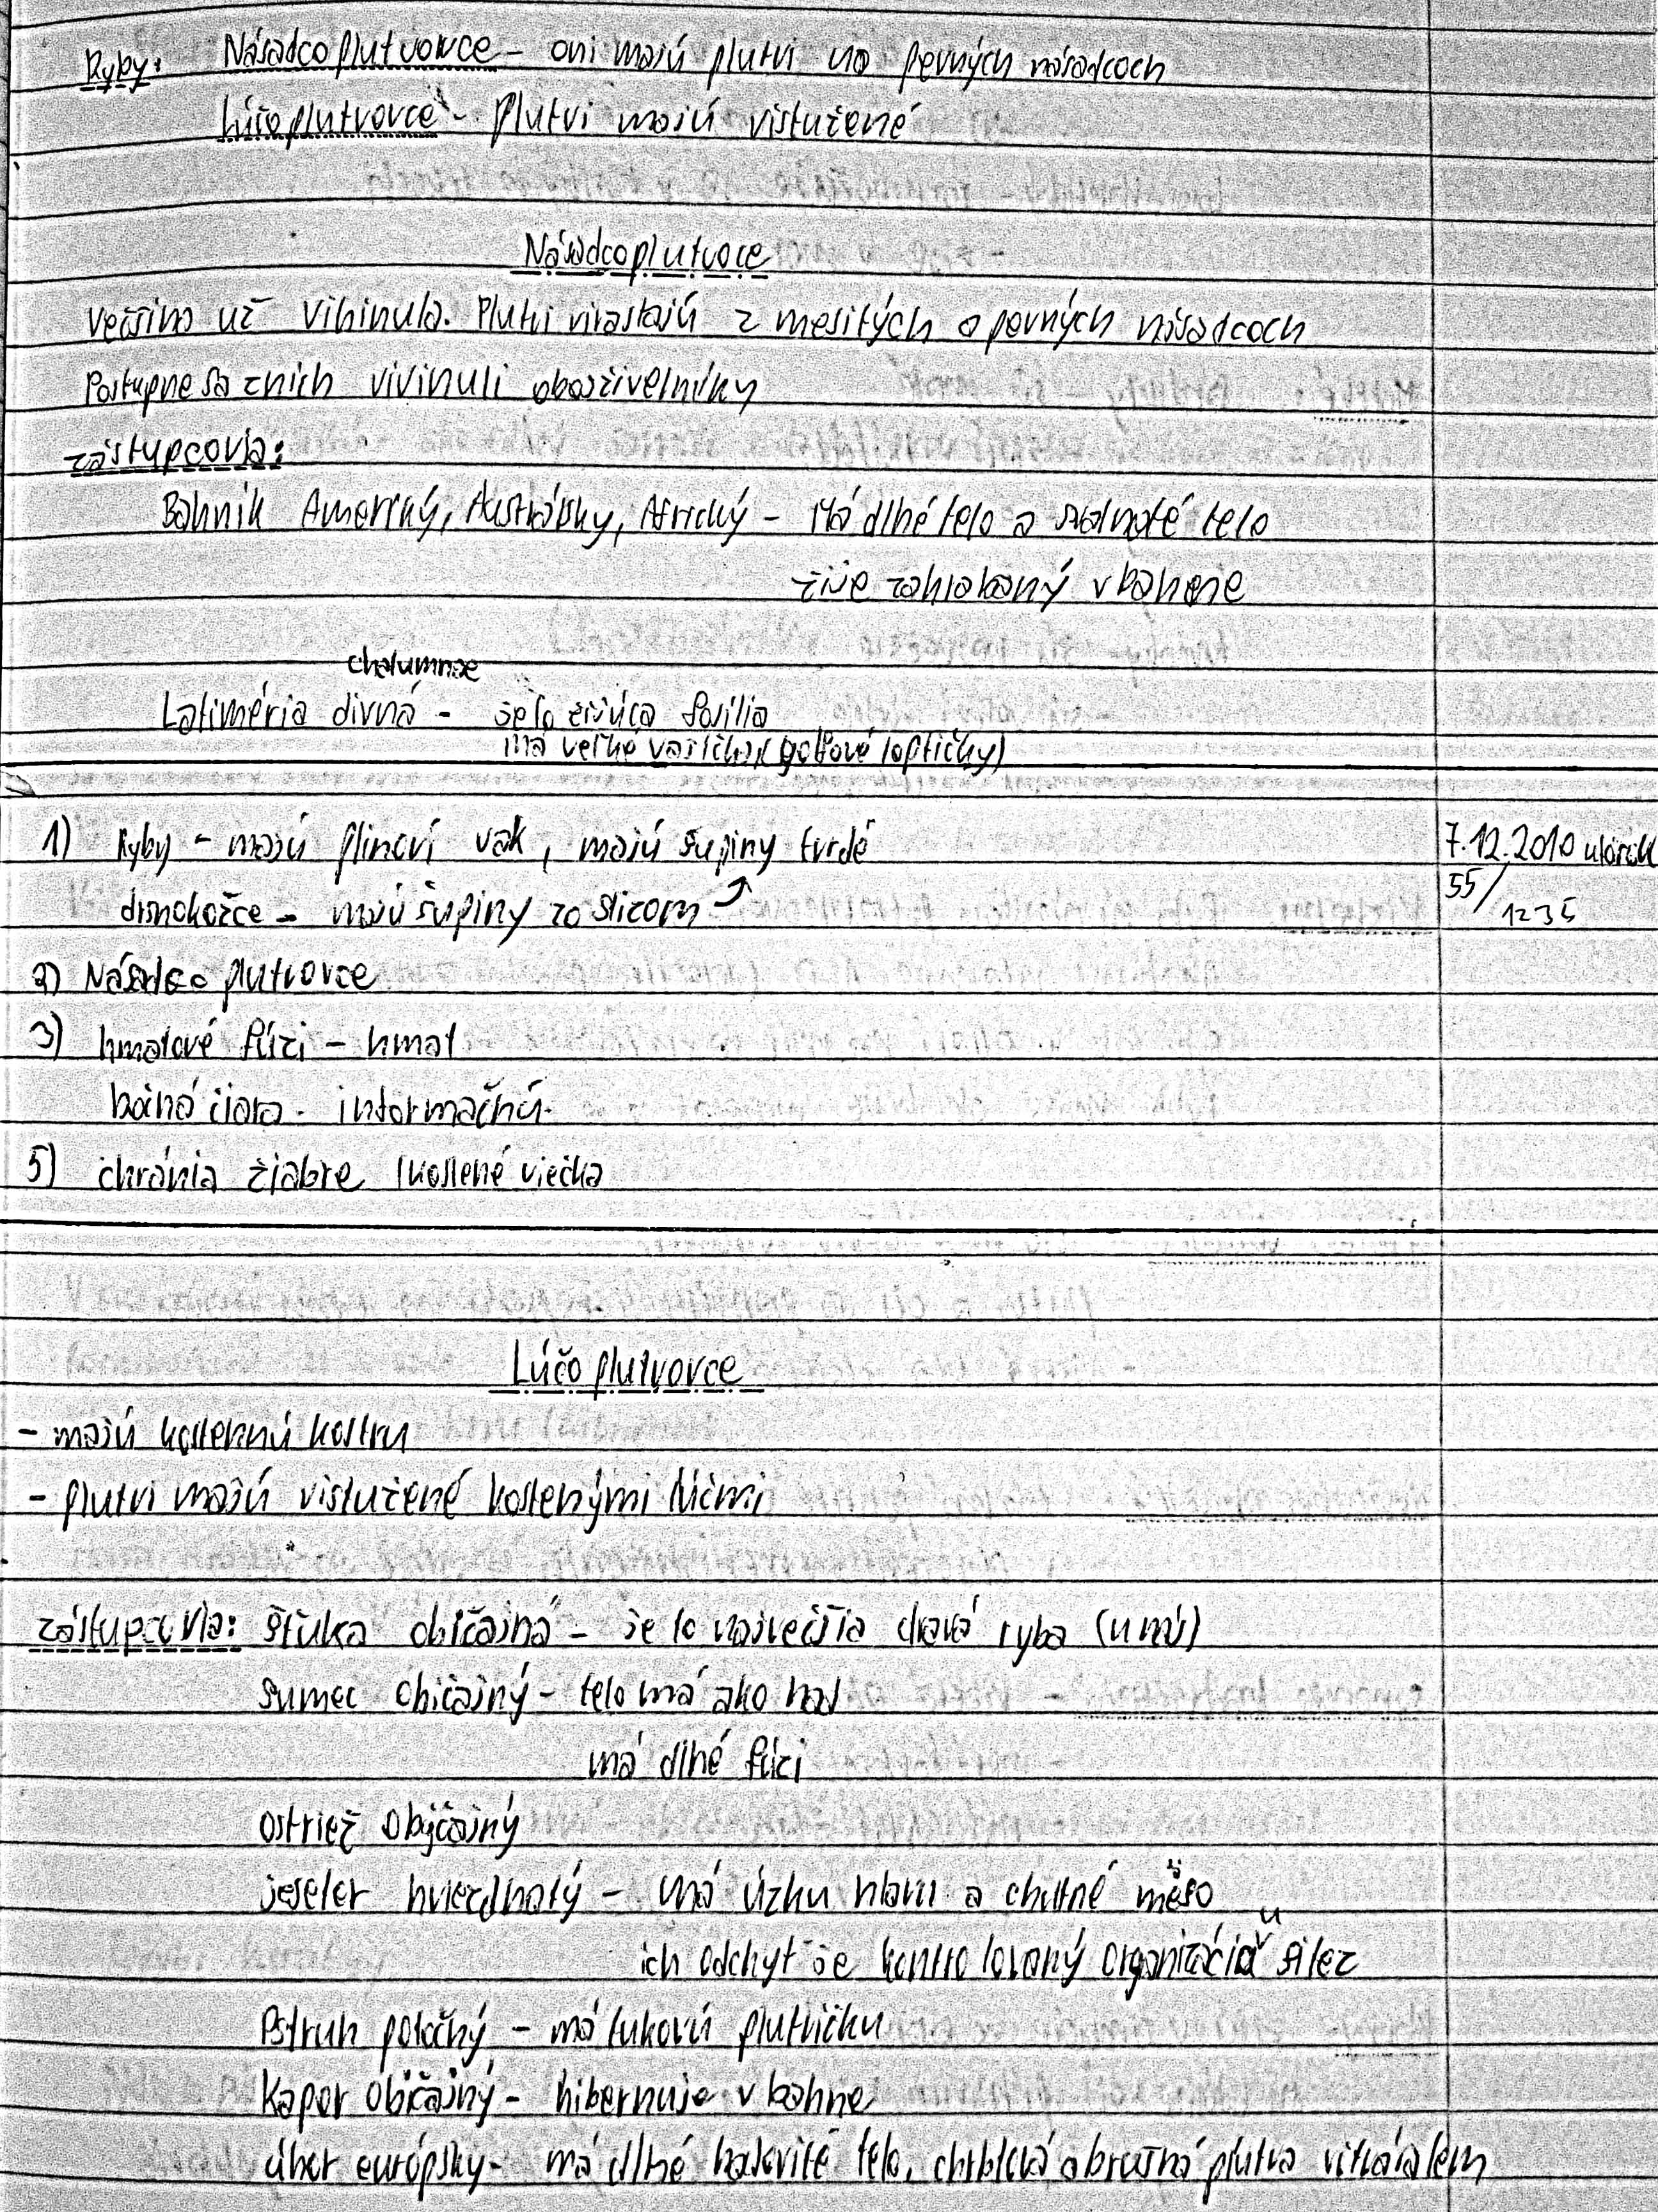 Ryby: Násadcoplutvovce - oni majú plutvi na pevných násadcoch
Lúčoplutvovce - Plutvi majú vistužené
Násadcoplutvoce
Večšina už vihinula. Plutvi virastajú z mesitých a pevných násadcoch
Postupne sa znich vivinuli obojživelníky
zástupcovia:
Bahník Americký, Austrálsky, Africký - Má dlhé telo a telo
žije zahrabaný v bahene
chalumnae
Latiméria divná - je to žijúca fosília
má veľké vajíčka (golfové loptičky)
1) Ryby - majú plinoví vak, majú šupiny tvrdé
7.12.2010 utorok
drsnokožce - majú šupiny zo slizom
55/1235
2) Násadco plutvovce
3) hmatové fúzi - hmat
bočná čiara - informačnú.
5) chránia žiabre (kostené viečka
Lúčo plutvovce
- majú kostennú kostru
- plutvi majú vistužené kostenými lúčmi
zástupcovia: Štuka običajná - je to največšia dravá ryba (u nás)
Sumec Običajný - telo má ako had
má dlhé fúzi
Ostriež Obyčajný
Jeseter hviezdnatý - má úzku hlavu a chutné mäso
ich odchyt je kontrolovaný organizáciou
Pstruh potočný - má tukovú plutvičku
Kapor Običajný - hibernuje v bahne
úhor európsky - má dlhé hadovité telo, chrbtová a brušná plutva